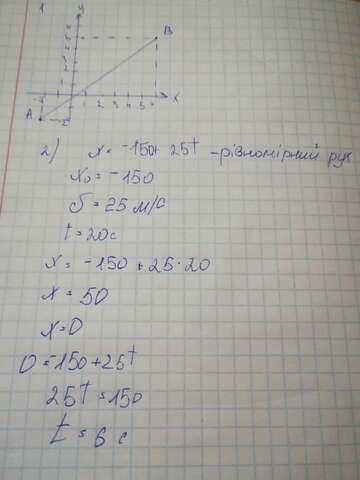 1
y
B
A
x
1 2 3 4 5
2) x = -150 + 25t - рівномірний рух
x₀ = -150
υ = 25 м/с
t = 20с
x = -150 + 25·20
x = 50
x = 0
0 = -150 + 25t
25t = 150
t = 6 с